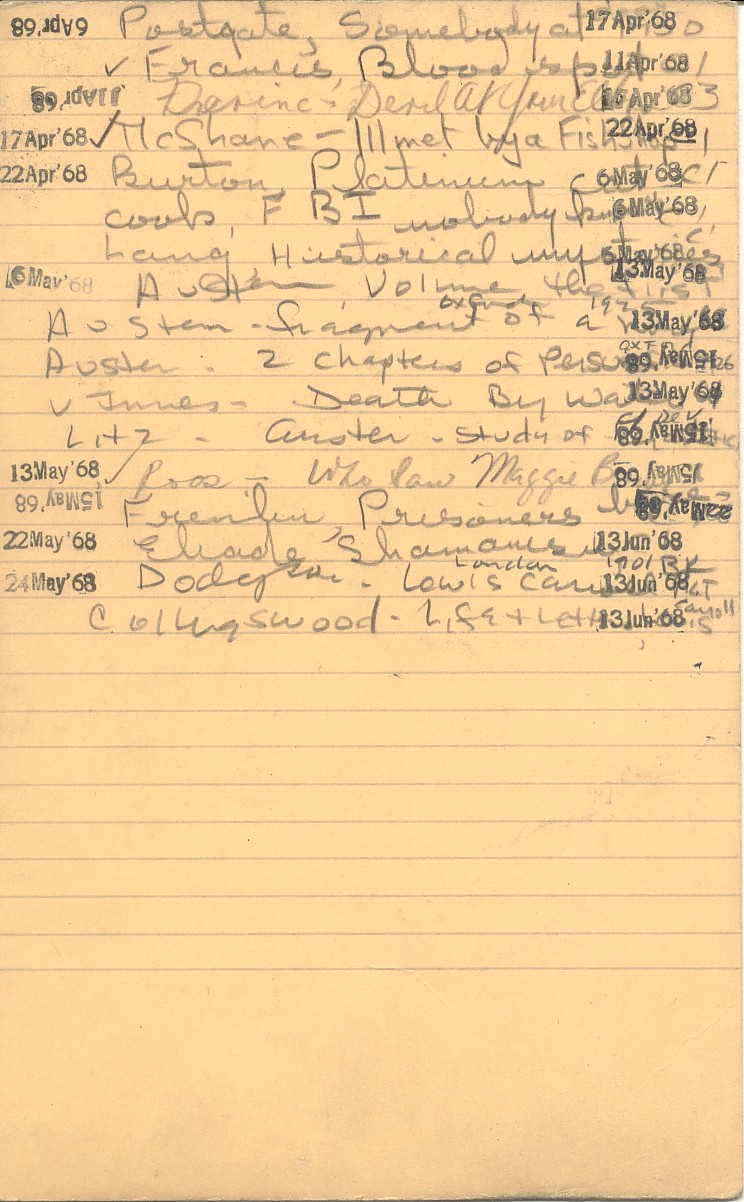 6 Apr '68 Postgate, Somebody at 17 Apr '68
✓ Francis, Blood sport 11 Apr '68
11 Apr '68 Devine - Devil At Your 16 Apr '68 3
17 Apr '68 ✓ McShane - Ill met by a Fish shop 22 Apr '68
22 Apr '68 Burton, Platinum cat 6 May '68
cook, FBI nobody kn 6 May '68
Lang Historical myst ies 6 May '68
6 May '68 Austen, Volume the First 13 May '68
Austen - fragment of a 1925 13 May '68
Austen - 2 chapters of Persu 15 May '68 26
v Innes - Death By Wa 13 May '68
Litz - Austen - study of 15 May '68
13 May '68 ✓ Roos - Who Saw Maggie B 15 May '68
15 May '68 Fremlin, Prisoners 22 May '68
22 May '68 Eliade, Shamanism 13 Jun '68
24 May '68 Dodgson - Lewis Car London 1901 13 Jun '68
Collingswood - Life + Lett Carroll 13 Jun '68